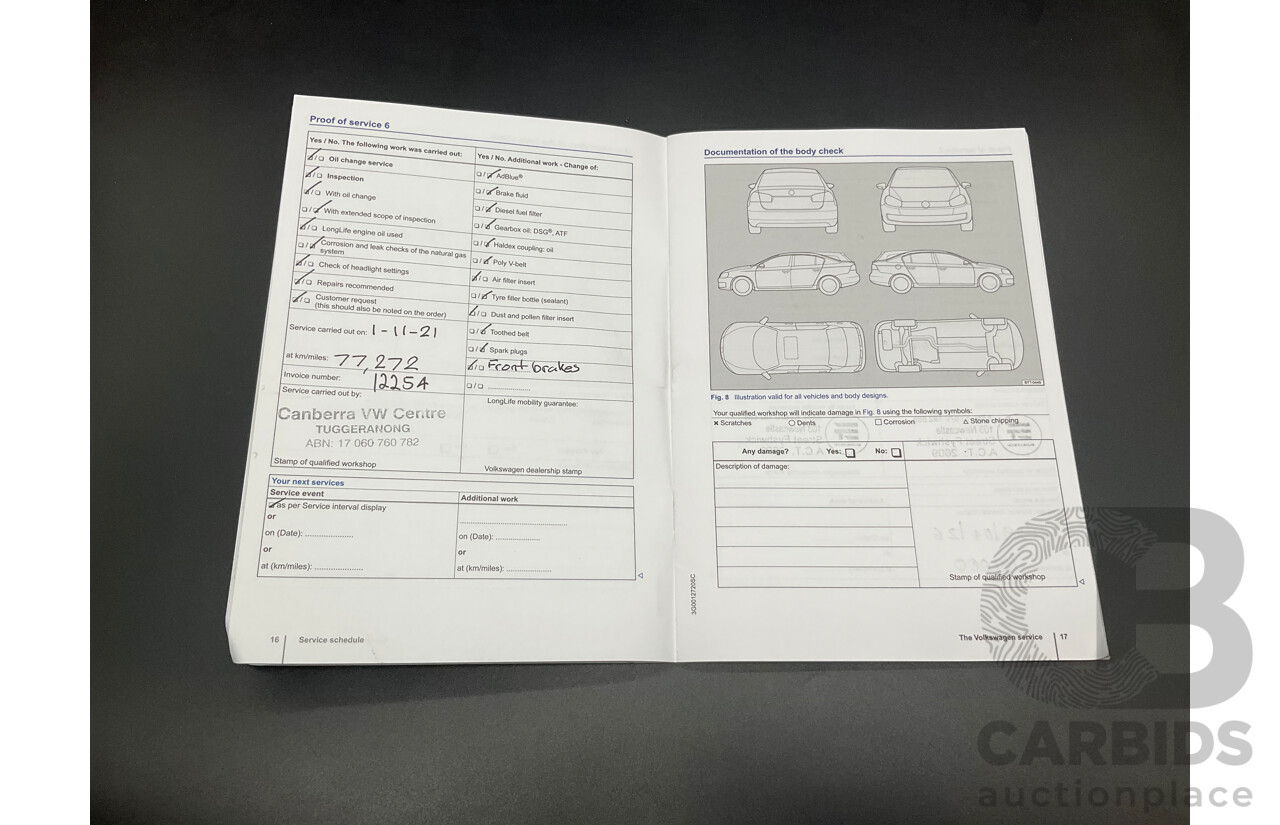 Proof of service 6
Yes / No. The following work was carried out:
Oil change service
Inspection
With oil change
With extended scope of inspection
LongLife engine oil used
Corrosion and leak checks of the natural gas
system
Check of headlight settings
Repairs recommended
Customer request
(this should also be noted on the order)
Service carried out on: 1-11-21
at km/miles: 77,272
Invoice number: 1225A
Service carried out by:
Canberra VW Centre
TUGGERANONG
ABN: 17 060 760 782
Stamp of qualified workshop
Yes / No. Additional work - Change of:
AdBlue®
Brake fluid
Diesel fuel filter
Gearbox oil: DSG®, ATF
Haldex coupling: oil
Poly V-belt
Air filter insert
Tyre filler bottle (sealant)
Dust and pollen filter insert
Toothed belt
Spark plugs
Front brakes
LongLife mobility guarantee:
Volkswagen dealership stamp
Your next services
Service event
as per Service interval display
or
on (Date): ....................
or
at (km/miles): ....................
Additional work
on (Date): ....................
or
at (km/miles): ....................
16 Service schedule
Documentation of the body check
Fig. 8 Illustration valid for all vehicles and body designs.
Your qualified workshop will indicate damage in Fig. 8 using the following symbols:
× Scratches ○ Dents □ Corrosion △ Stone chipping
Any damage? Yes: No:
Description of damage:
Stamp of qualified workshop
3G0012720SC
The Volkswagen service 17
CARBIDS
auctionplace